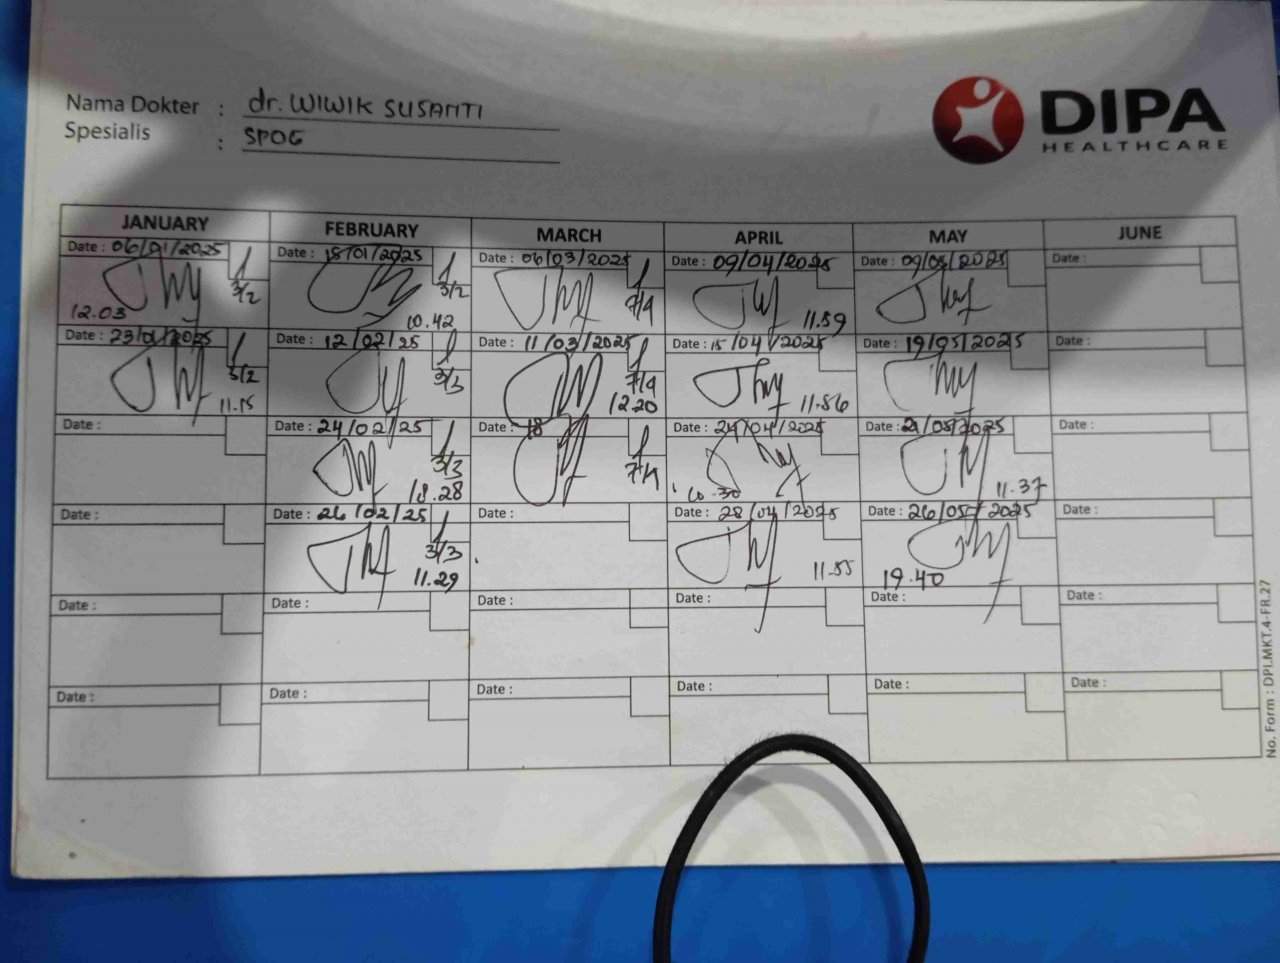 Nama Dokter : dr. WIWIK SUSANTI
Spesialis : SPOG
DIPA
HEALTHCARE
JANUARY FEBRUARY MARCH APRIL MAY JUNE
Date : 06/01/2025 Date : 15/01/2025 Date : 06/03/2025 Date : 09/04/2025 Date : 09/05/2025 Date :
3/2 3/2 7/4
12.03 10.42 11.59
Date : 23/01/2025 Date : 12/02/25 Date : 11/03/2025 Date : 15/04/2025 Date : 19/05/2025 Date :
3/2 3/3 7/4
11.15 12.20 11.56
Date : Date : 24/02/25 Date : 18 Date : 24/04/2025 Date : 21/05/2025 Date :
3/3 7/4
18.28 10.30 11.37
Date : Date : 26/02/25 Date : Date : 28/04/2025 Date : 26/05/2025 Date :
3/3
11.29 11.55 19.40
Date : Date : Date : Date : Date : Date :
Date : Date : Date : Date : Date : Date :
No. Form : DPI.MKT.4-FR.27